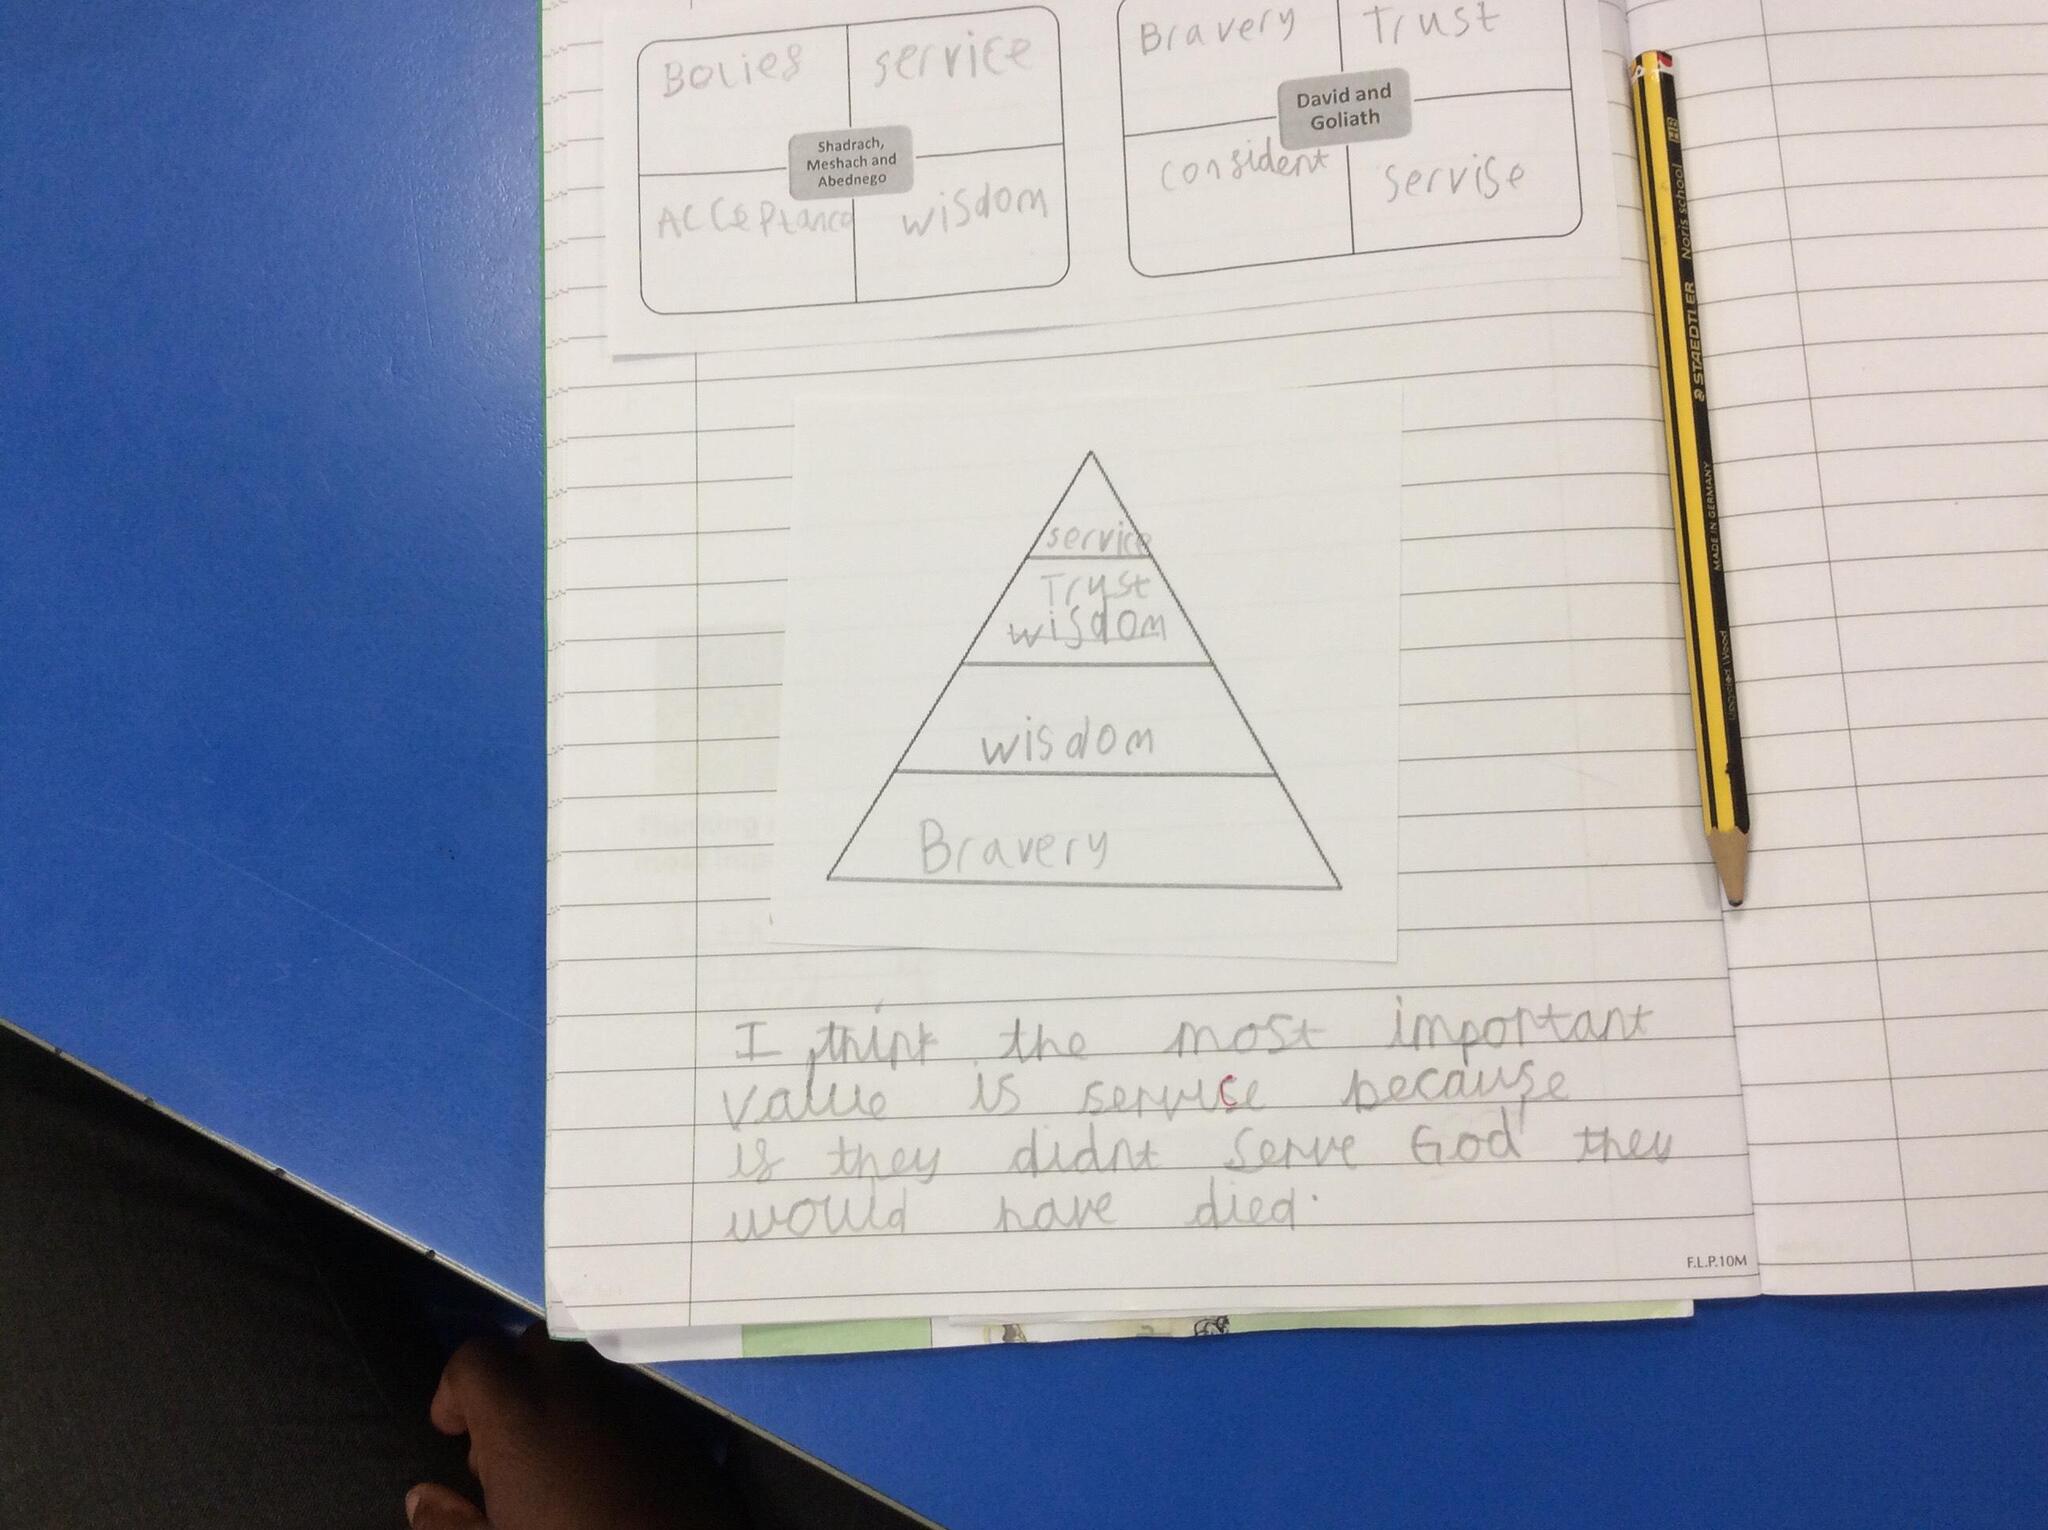 Bolies service
Shadrach,
Meshach and
Abednego
Acceptance wisdom
Bravery Trust
David and
Goliath
consident servise
service
Trust
wisdom
wisdom
Bravery
I think the most important
value is service because
is they didnt serve God they
would have died.
F.L.P.10M
Noris school HB
STAEDTLER
MADE IN GERMANY
Upcycled Wood